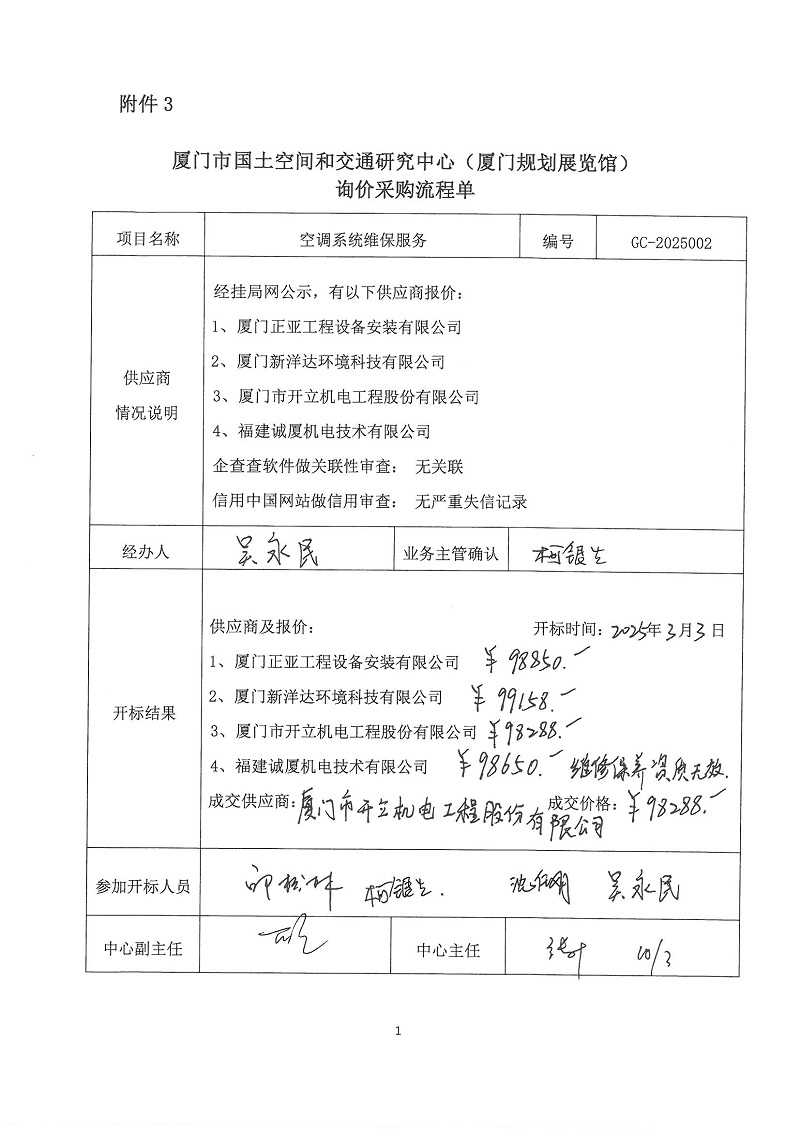 附件 3
厦门市国土空间和交通研究中心（厦门规划展览馆）
询价采购流程单
项目名称 空调系统维保服务 编号 GC-2025002
经挂局网公示，有以下供应商报价：
1、厦门正亚工程设备安装有限公司
2、厦门新洋达环境科技有限公司
供应商
情况说明
3、厦门市开立机电工程股份有限公司
4、福建诚厦机电技术有限公司
企查查软件做关联性审查： 无关联
信用中国网站做信用审查： 无严重失信记录
经办人 吴永民 业务主管确认 柯银生
供应商及报价： 开标时间：2025年3月3日
1、厦门正亚工程设备安装有限公司 ￥98850.—
2、厦门新洋达环境科技有限公司 ￥99158.—
开标结果
3、厦门市开立机电工程股份有限公司 ￥98288.—
4、福建诚厦机电技术有限公司 ￥98650.— 维修保养资质无效.
成交供应商：厦门市开立机电工程股份有限公司 成交价格：￥98288.—
参加开标人员 柯银生. 吴永民
中心副主任 中心主任 10/3
1